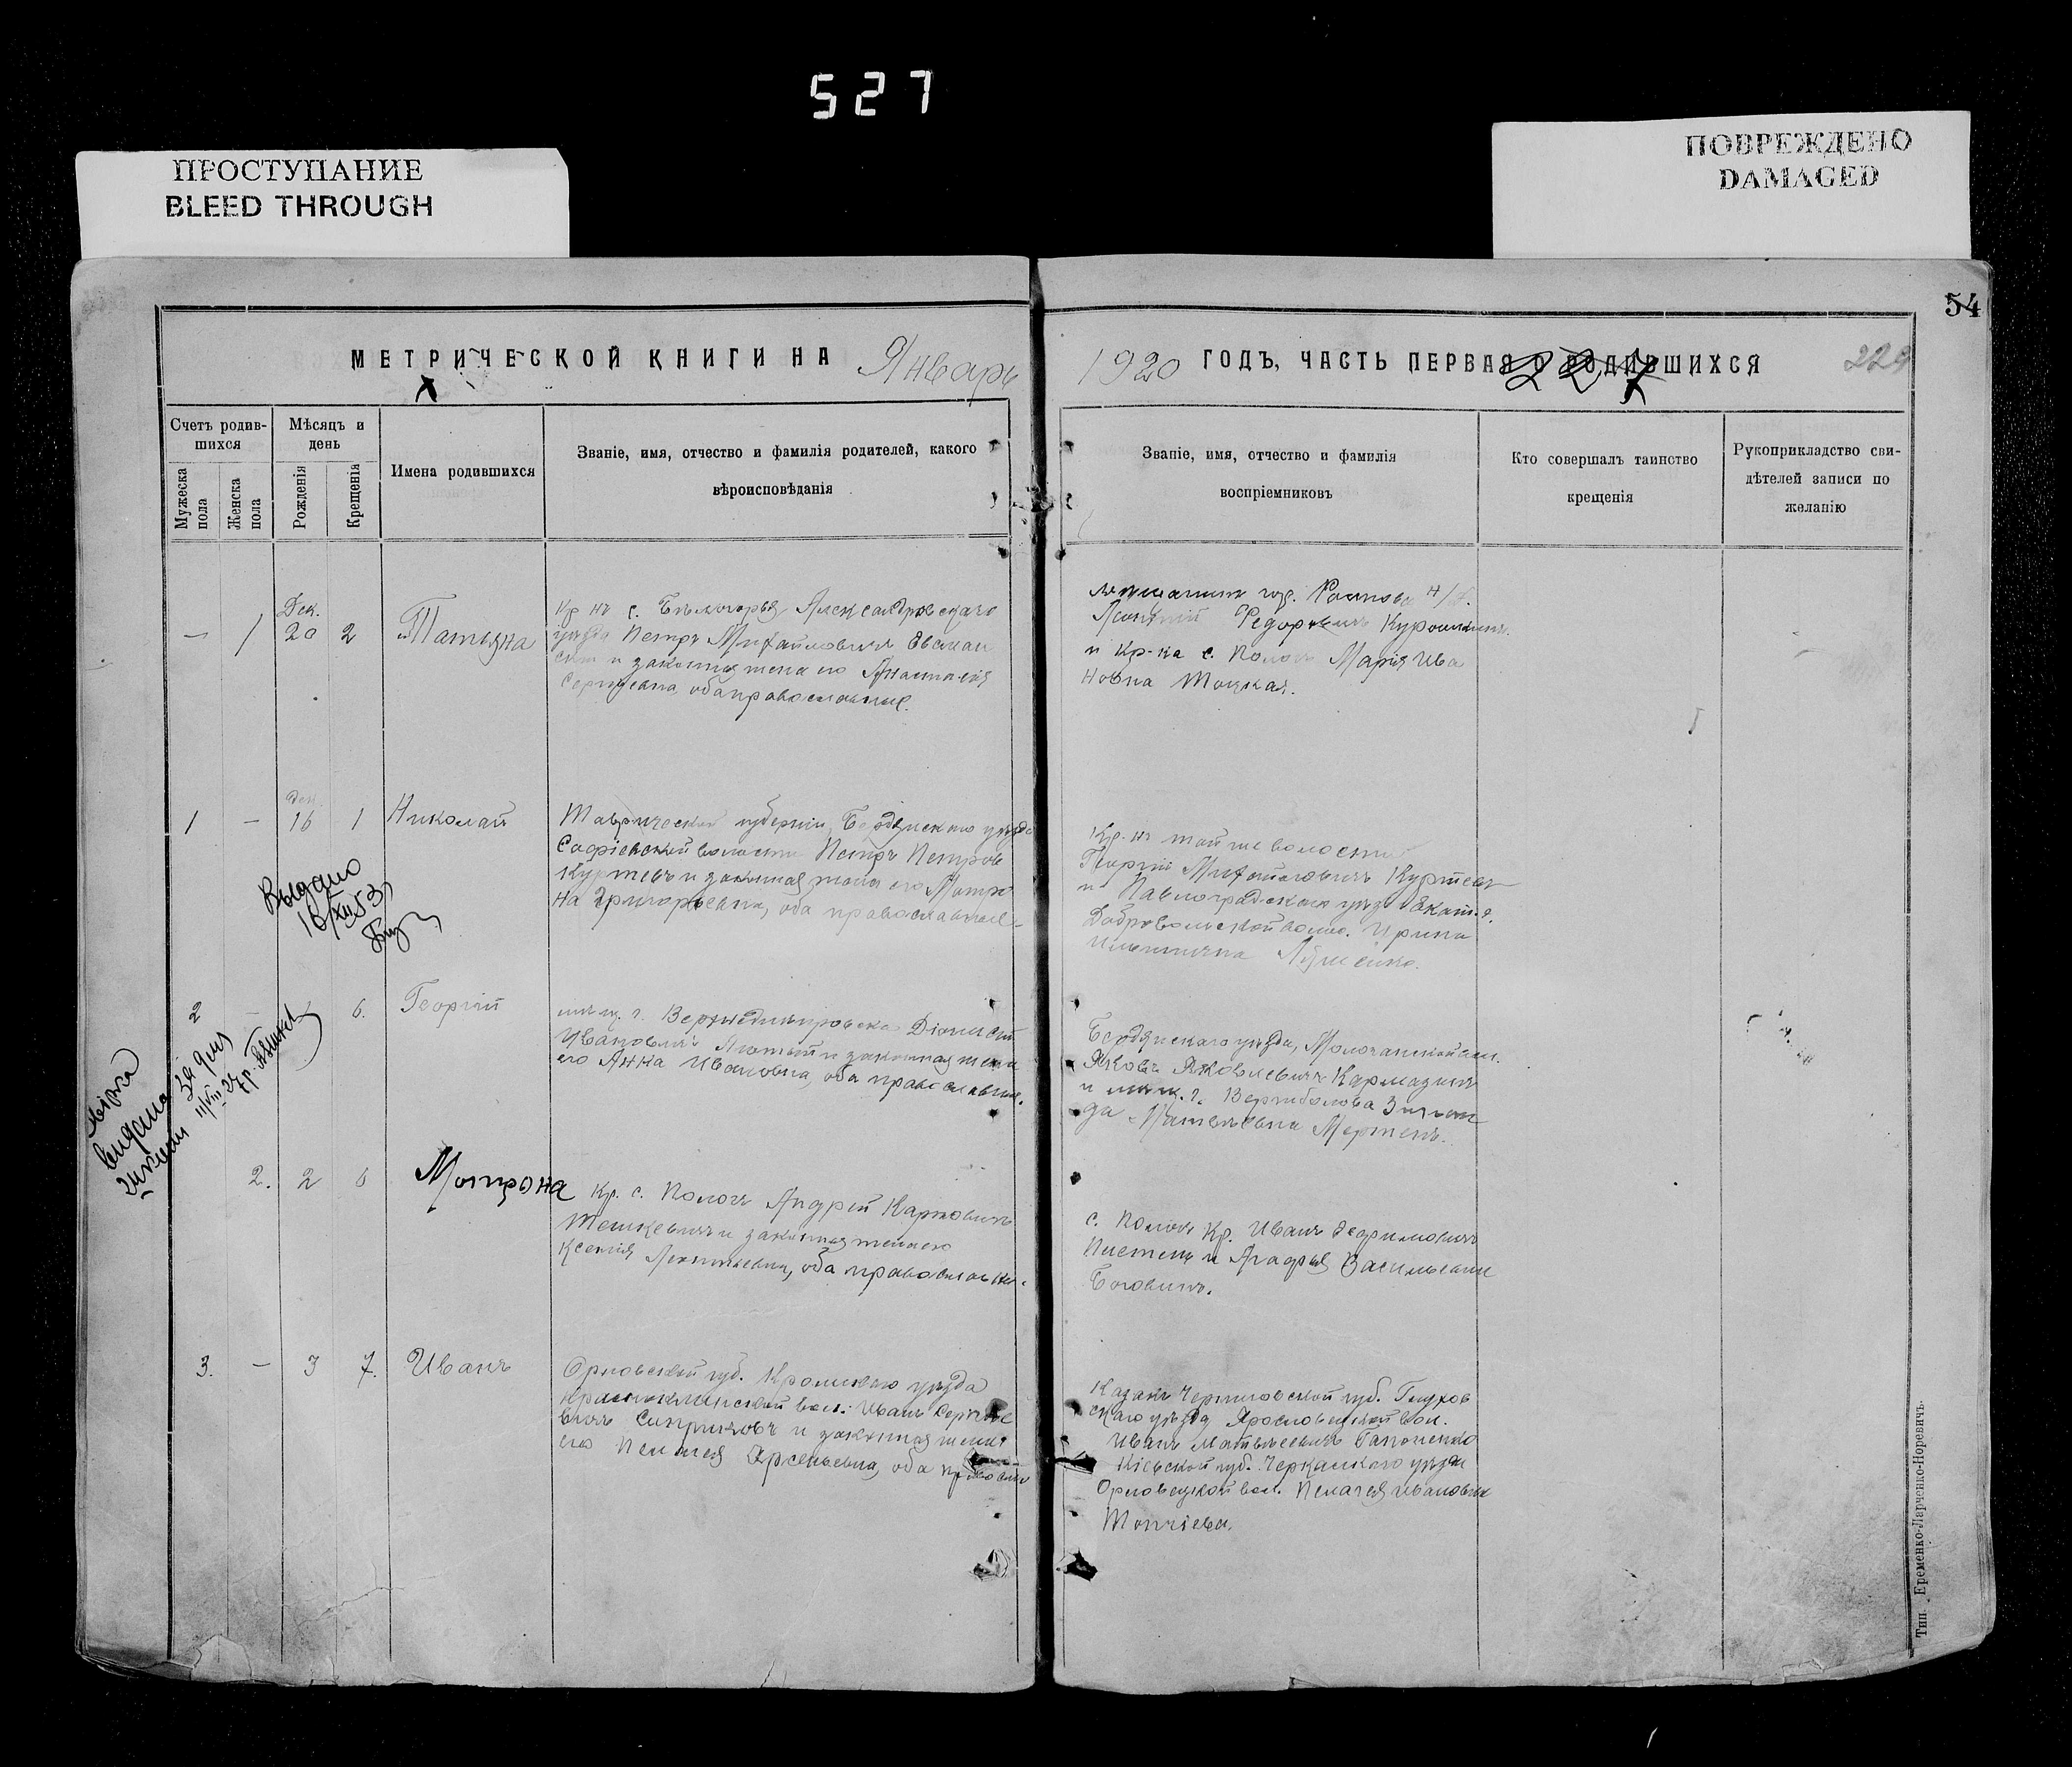 527
ПРОСТУПАНИЕ
BLEED THROUGH
ПОВРЕЖДЕНО
DAMAGED
54
МЕТРИЧЕСКОЙ КНИГИ НА Январь
1920 ГОДЪ, ЧАСТЬ ПЕРВАЯ О РОДИВШИХСЯ
227
229
Счетъ родив-
шихся
Мужеска
пола
Женска
пола
Мѣсяцъ и
день
Рожденія
Крещенія
Имена родившихся
Званіе, имя, отчество и фамилія родителей, какого
вѣроисповѣданія
Званіе, имя, отчество и фамилія
воспріемниковъ
Кто совершалъ таинство
крещенія
Рукоприкладство сви-
дѣтелей записи по
желанію
Дек.
— 1 20 2 Татіяна
Кр-нъ с. Бѣлогорья Александровскаго
уѣзда Петръ Михайловичъ
и законная жена его Анастасія
Сергѣевна, оба православные.
мѣщанинъ гор. Ростова Н/Д.
Федоровичъ
и Кр-ка с. Пологъ Марія Ива
новна Тоцкая.
Дек.
1 — 16 1 Николай
Таврической губерніи, Бердянскаго уѣзда
Софіевской волости Петръ Петровъ
Куртевъ и законная жена его Матро
на Григорьевна, оба православные.
Кр-нъ той же волости
Георгій Михайловичъ Куртевъ
и Павлоградскаго уѣзда Екат. г.
Добровольской волос. Ирина
Ильинична
Выдано
16/XII 53
2 — 6. Георгій
мѣщ. г. Верхнеднѣпровска Діонисій
Ивановичъ Лютый и законная жена
его Анна Ивановна, оба православные.
Бердянскаго уѣзда, Молочанской вол.
Яковъ Яковлевичъ Кармазинъ
и мѣщ. г. Вержболова Зинаи
да Матвѣевна Мертенъ.
видана за
11/VIII-27
2. 2 6 Мотрона
Кр. с. Пологъ Андрей Карповичъ
Тешкевичъ и законная жена его
Ксенія Леонтьевна, оба православные.
с. Пологъ Кр. Иванъ
и Агафья Васильевна
3. — 3 7. Иванъ
Орловской губ. Кромскаго уѣзда
вол. Иванъ Сергѣе
вичъ и законная жена
его Арсеньевна, оба православн
Казакъ Черниговской губ. Глухов
скаго уѣзда Ярославецкой вол.
Иванъ Матвѣевичъ Гапоненко
Кіевской губ. Черкасскаго уѣзда
Орловецкой вол. Пелагея Ивановна
Топчіева.
Тип. Еременко-Ларченко-Норевичъ.